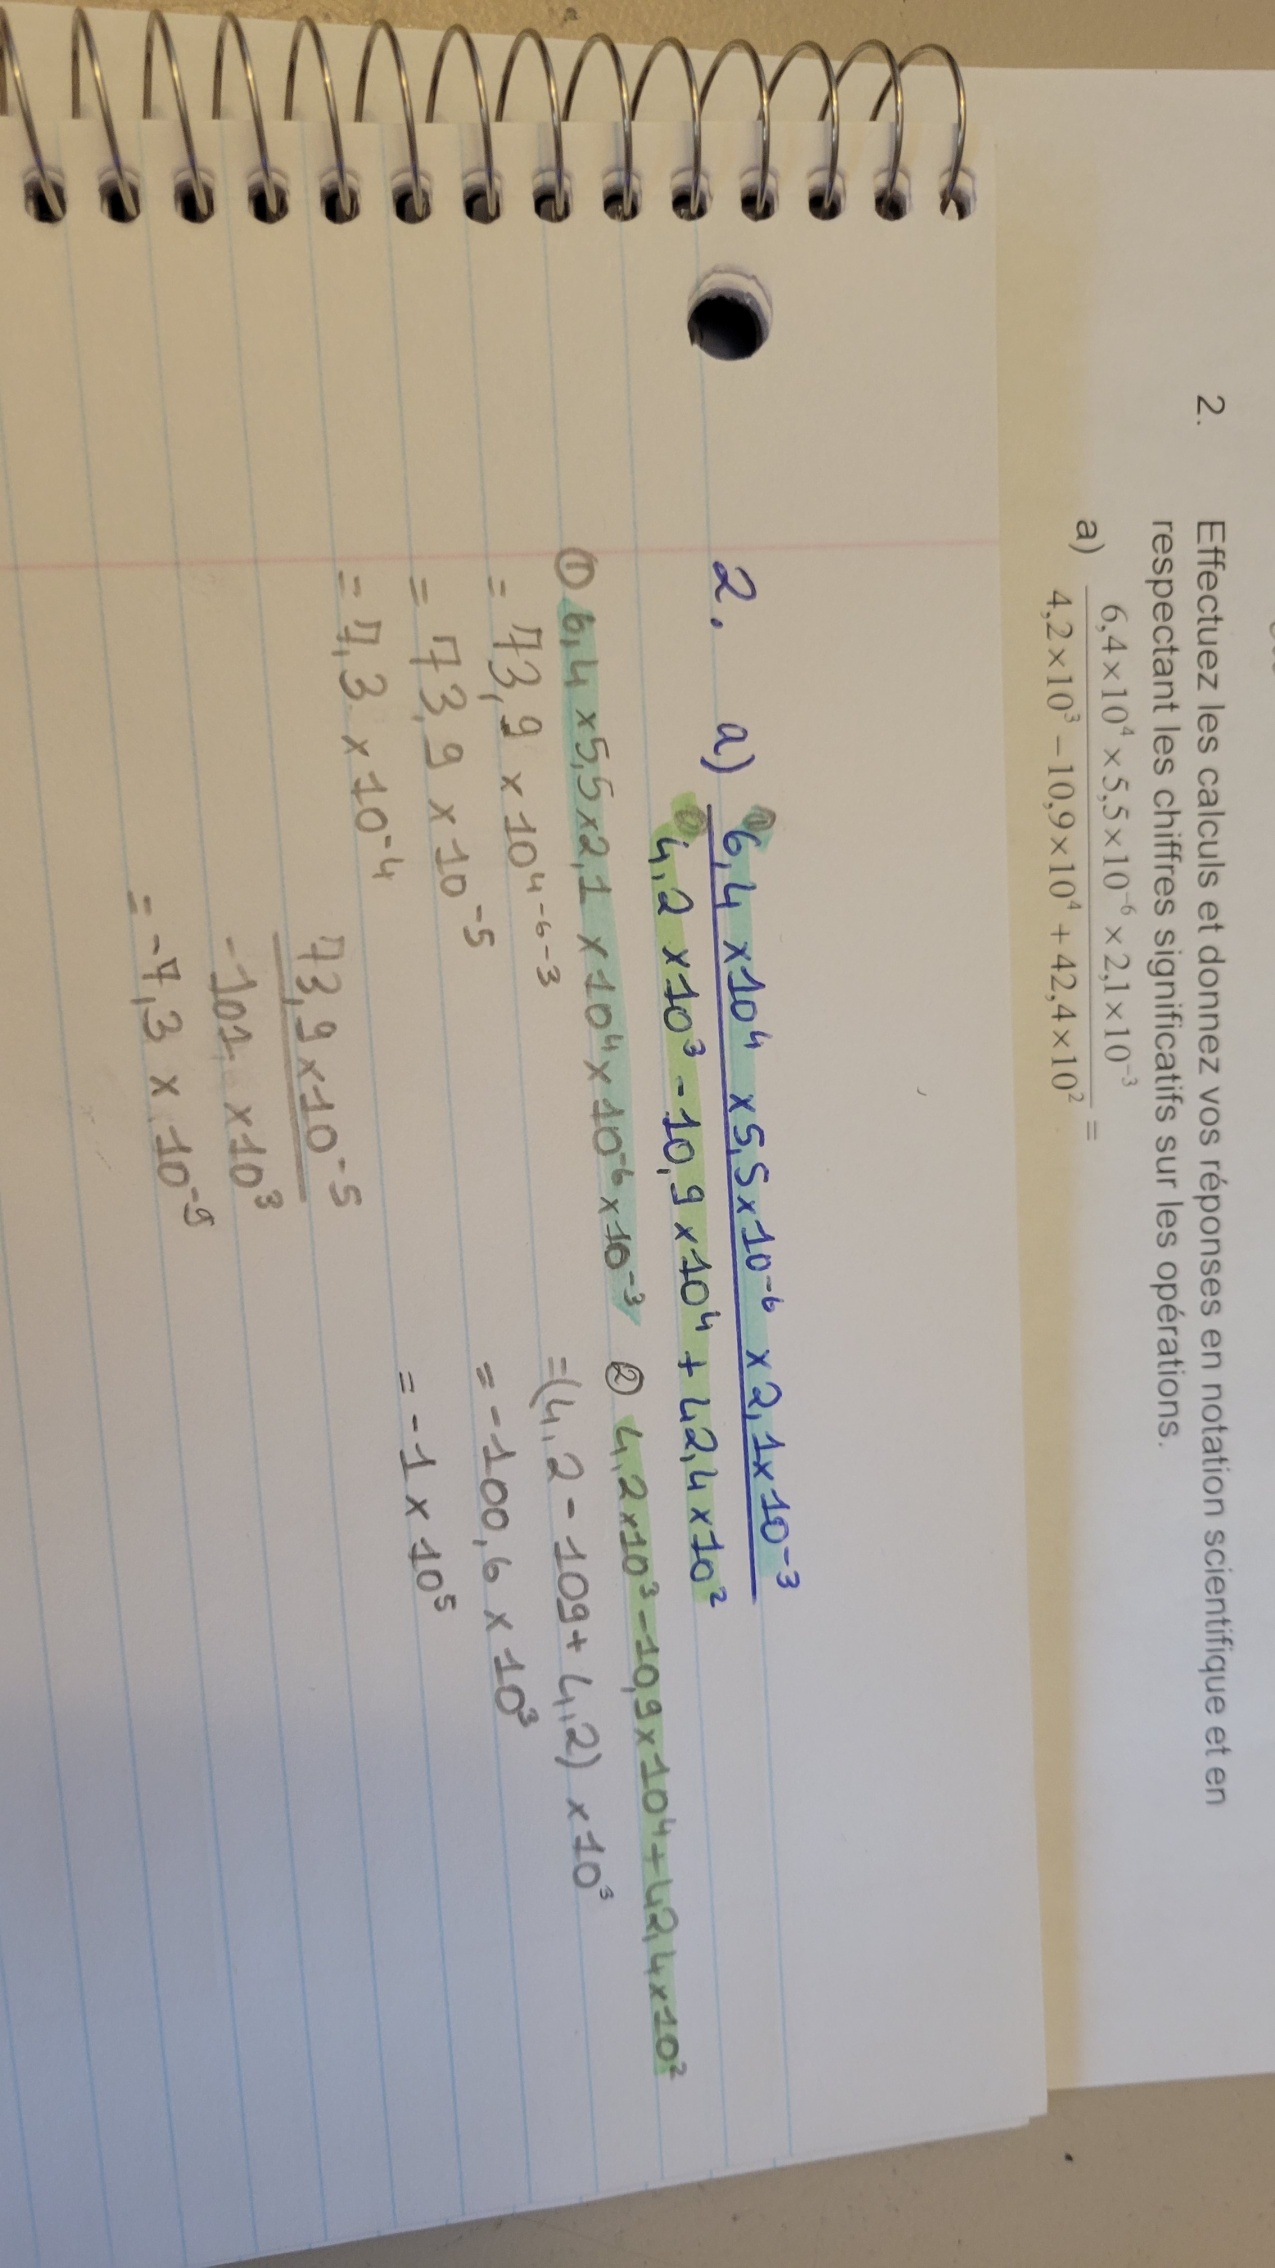 2. Effectuez les calculs et donnez vos réponses en notation scientifique et en
respectant les chiffres significatifs sur les opérations.
a) 6,4×10⁴×5,5×10⁻⁶×2,1×10⁻³
4,2×10³−10,9×10⁴+42,4×10² =
2. a) 6,4 ×10⁴ ×5,5×10⁻⁶ ×2,1×10⁻³
4,2 ×10³ -10,9×10⁴ + 42,4×10²
① 6,4 ×5,5×2,1 ×10⁴×10⁻⁶×10⁻³
= 73,9 ×10⁴⁻⁶⁻³
= 73,9 ×10⁻⁵
= 7,3 ×10⁻⁴
② 4,2×10³-10,9×10⁴+42,4×10²
=(4,2-109+4,2) ×10³
= -100,6 ×10³
= -1×10⁵
73,9×10⁻⁵
-101 ×10³
= -7,3 × 10⁻⁹